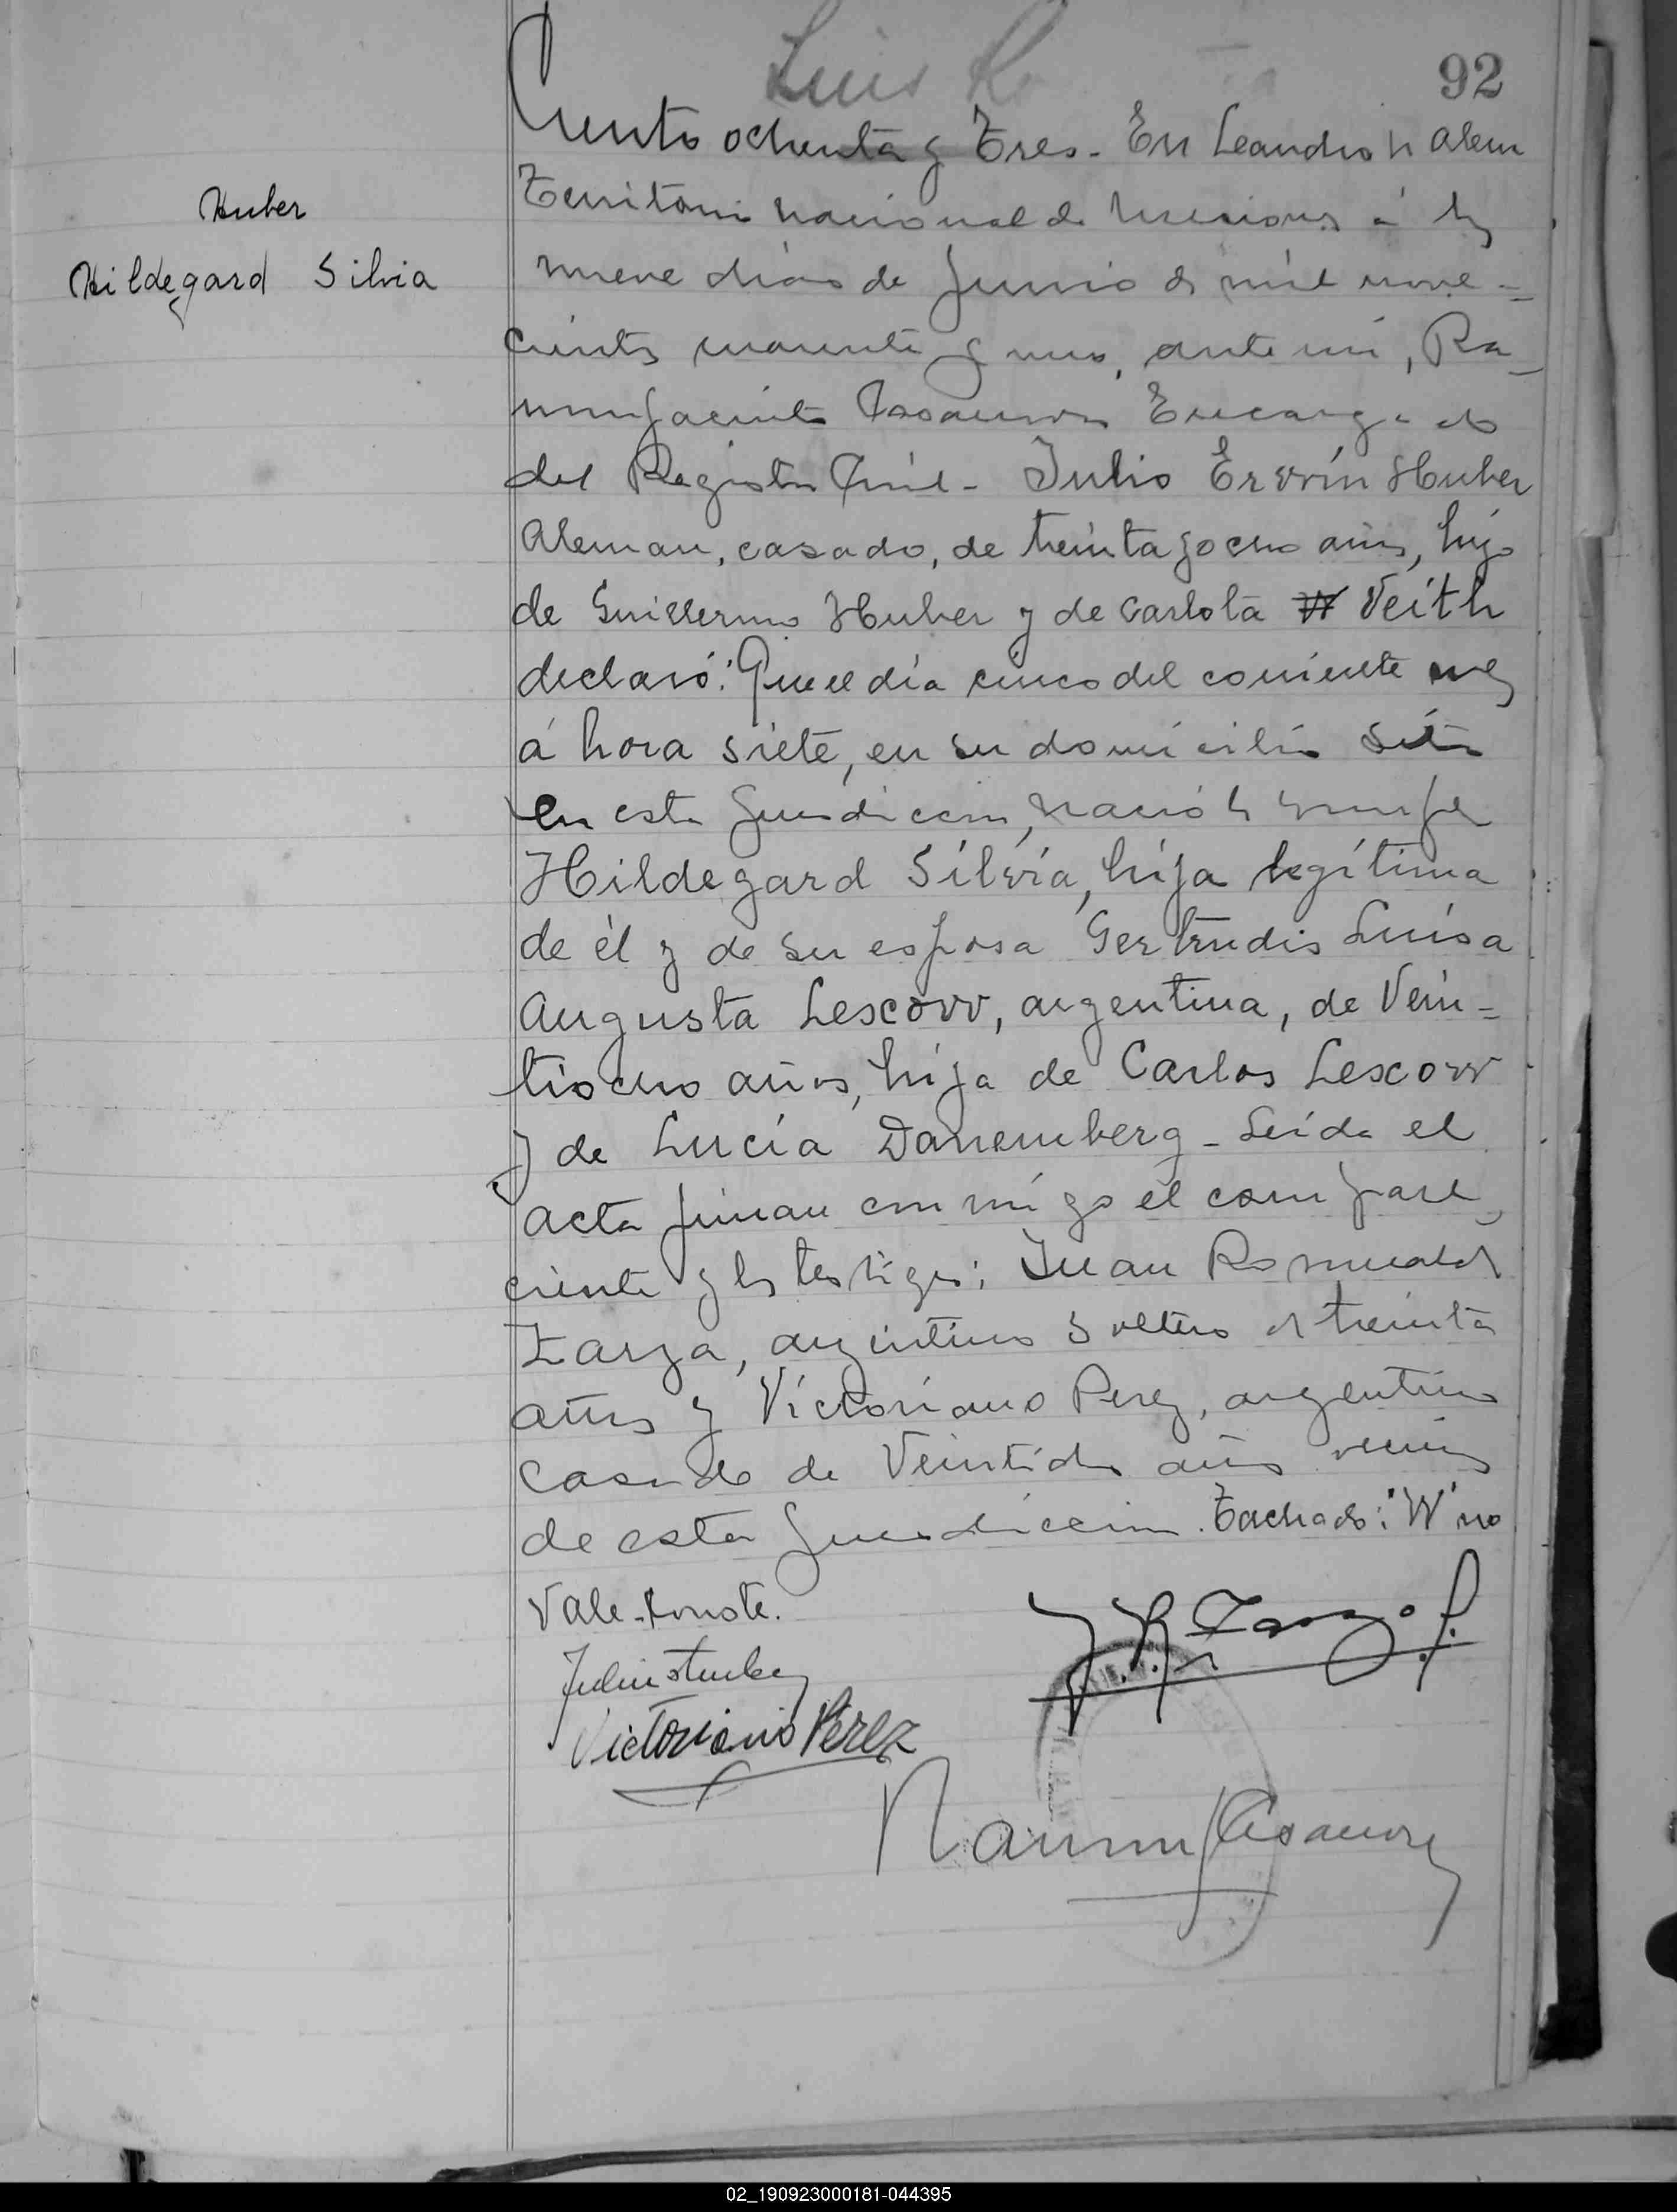 Luis
92
Ciento ochenta y Tres - En Leandro N Alem
Huber
Territorio nacional de Misiones á los
Hildegard Silvia
nueve días de Junio de mil nove-
cientos cuarenta y uno, ante mi, Ra-
mon Jacinto Casanova Encargado
del Registro Civil - Julio Ervvín Huber
Aleman, casado, de treinta y ocho años, hijo
de Guillermo Huber y de Carlota W Veith
declaró: Que el día cinco del corriente mes
á hora siete, en su domicilio sito
en esta Jurisdiccion, nació la
Hildegard Silvia, hija legítima
de él y de su esposa Gertrudis Luisa
Augusta Lescovv, argentina, de Vein-
tiocho años, hija de Carlos Lescovv
y de Lucía Danemberg - Leida el
acta firman conmigo el compare
ciente y los testigos: Juan Romualdo
Zarza, argentino soltero de treinta
años y Victoriano Perez, argentino
casado de Veintidos años vecinos
de esta Jurisdiccion. Tachado: "W" no
Vale. Conste.
J. R. Zarza
Julio Huber
Victoriano Perez
Ramon J Casanova
02_190923000181-044395